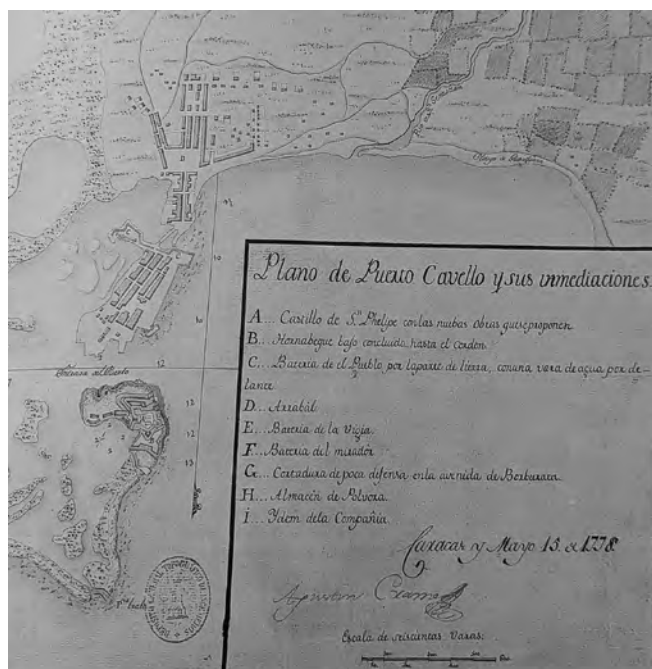 Rio
Entrada del Puerto
12
12
13
12
13
Plano de Puerto Cavello y sus inmediaciones.
A... Castillo de S.n Phelipe con las nuebas obras que se proponen.
B... Hornabeque bajo concluido hasta el cordon.
C... Bateria de el Pueblo por la parte de tierra, con una vara de agua por de-
lante
D... Arrabál.
E... Bateria de la Vigia.
F... Bateria del mirador.
G... Cortadura de poca defensa en la avenida de Borburata.
H... Almacén de Polvora.
I... Ydem de la Compañia.
Caracas y Mayo 13. de 1778
Agustin Crame
Escala de seiscientas Varas.